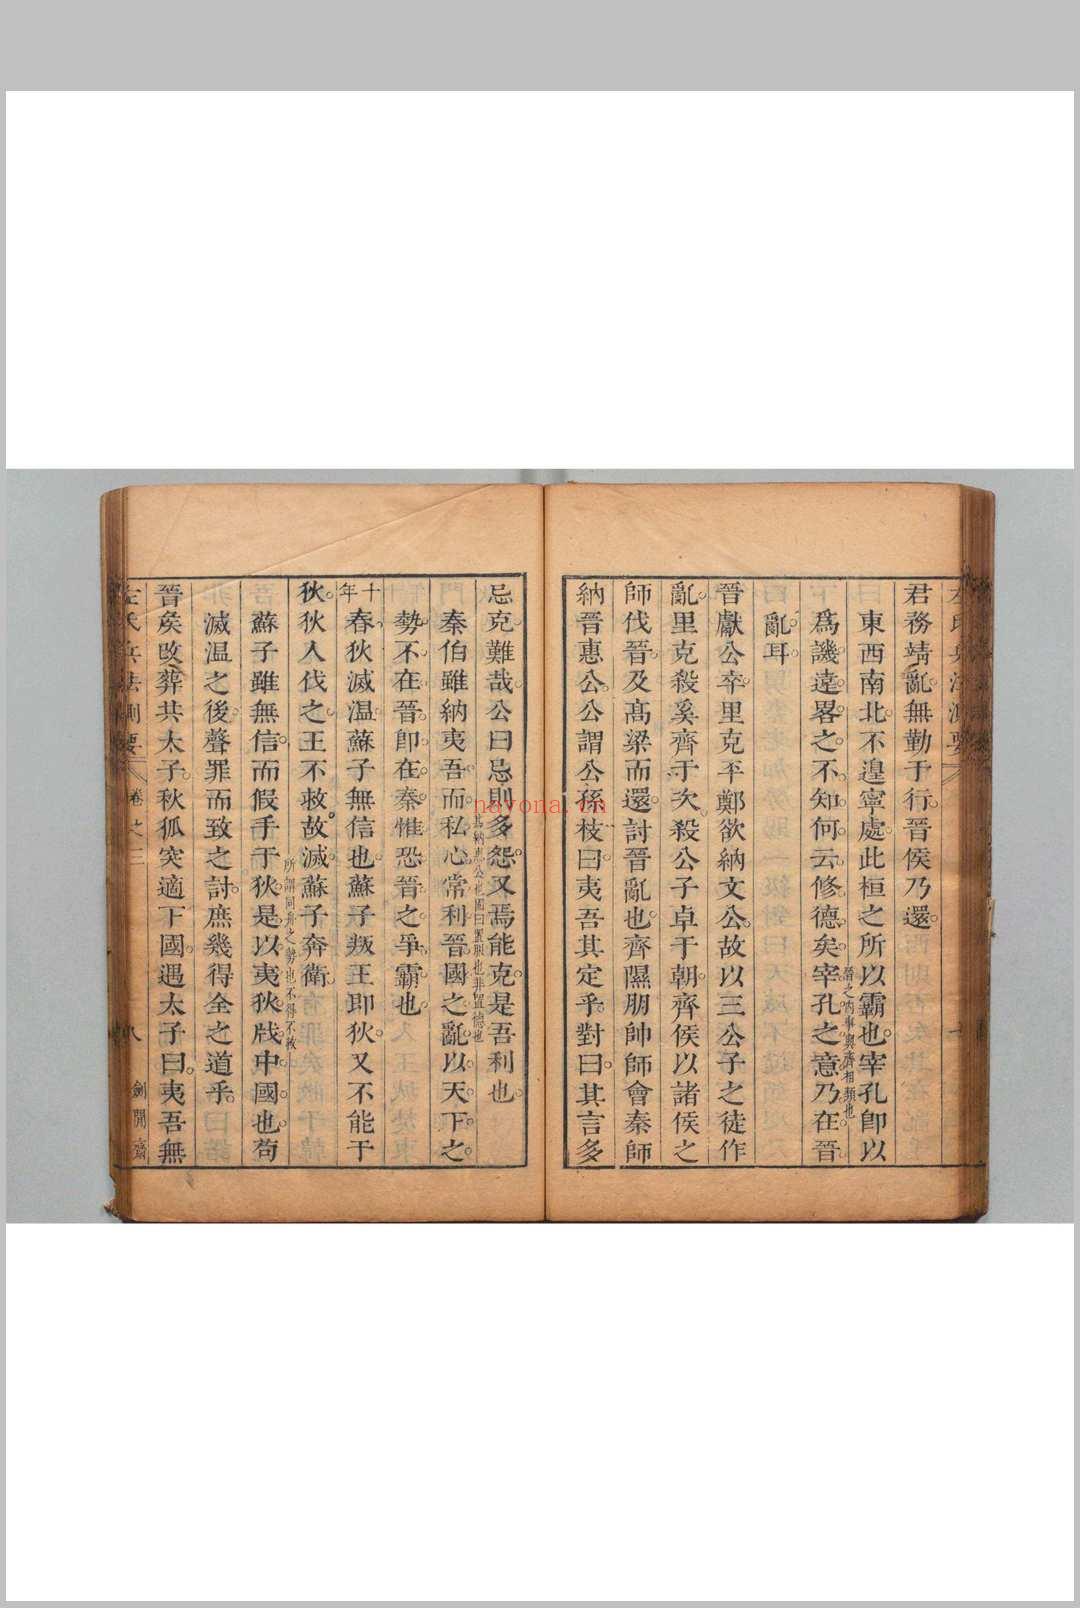 君務靖亂無勤于行晉侯乃還
東西南北不遑寧處此桓之所以霸也宰孔即以
晉之內事與齊相類也
爲譏遠畧之不知何云修德矣宰孔之意乃在晉
亂耳
晉獻公卒里克㔻鄭欲納文公故以三公子之徒作
亂里克殺奚齊于次殺公子卓于朝齊侯以諸侯之
師伐晉及高梁而還討晉亂也齊隰朋帥師會秦師
納晉惠公公謂公孫枝曰夷吾其定乎對曰其言多
忌克難哉公曰忌則多怨又焉能克是吾利也
秦伯雖納夷吾而私心常利晉國之亂以天下之
勢不在晉即在秦惟恐晉之爭霸也
十年春狄滅温蘇子無信也蘇子叛王即狄又不能于
狄狄人伐之王不救故滅蘇子奔衛
所謂同舟之勢也不得不救
蘇子雖無信而假手于狄是以夷狄戕中國也苟
滅温之後聲罪而致之討庶幾得全之道乎
晉矦改葬共太子秋狐突適下國遇太子曰夷吾無
左氏兵法測要 卷之三 八 劍閒齋
nayona.cn